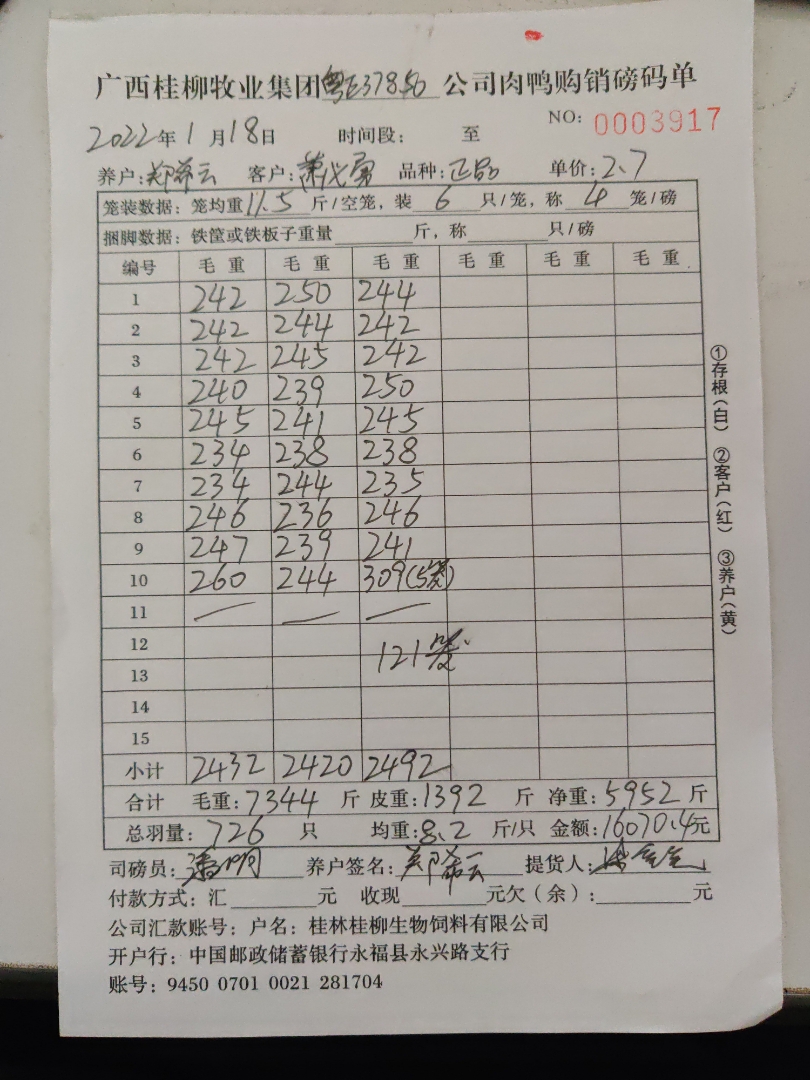 广西桂柳牧业集团粤E37850公司肉鸭购销磅码单
NO: 0003917
2022年1月18日 时间段: 至
养户:郑希云 客户: 品种:正品 单价:2.7
笼装数据:笼均重11.5斤/空笼,装6只/笼,称4笼/磅
捆脚数据:铁筐或铁板子重量 斤,称 只/磅
编号 毛重 毛重 毛重 毛重 毛重 毛重
1 242 250 244
2 242 244 242
3 242 245 242
4 240 239 250
5 245 241 245
6 234 238 238
7 234 244 235
8 246 236 246
9 247 239 241
10 260 244 309(5笼)
11 — — —
12
121笼
13
14
15
小计 2432 2420 2492
合计 毛重:7344斤 皮重:1392斤 净重:5952斤
总羽量:726只 均重:8.2斤/只 金额:16070.4元
司磅员: 养户签名:郑希云 提货人:
付款方式:汇 元 收现 元欠(余): 元
公司汇款账号:户名:桂林桂柳生物饲料有限公司
开户行:中国邮政储蓄银行永福县永兴路支行
账号:9450 0701 0021 281704
①存根(白) ②客户(红) ③养户(黄)